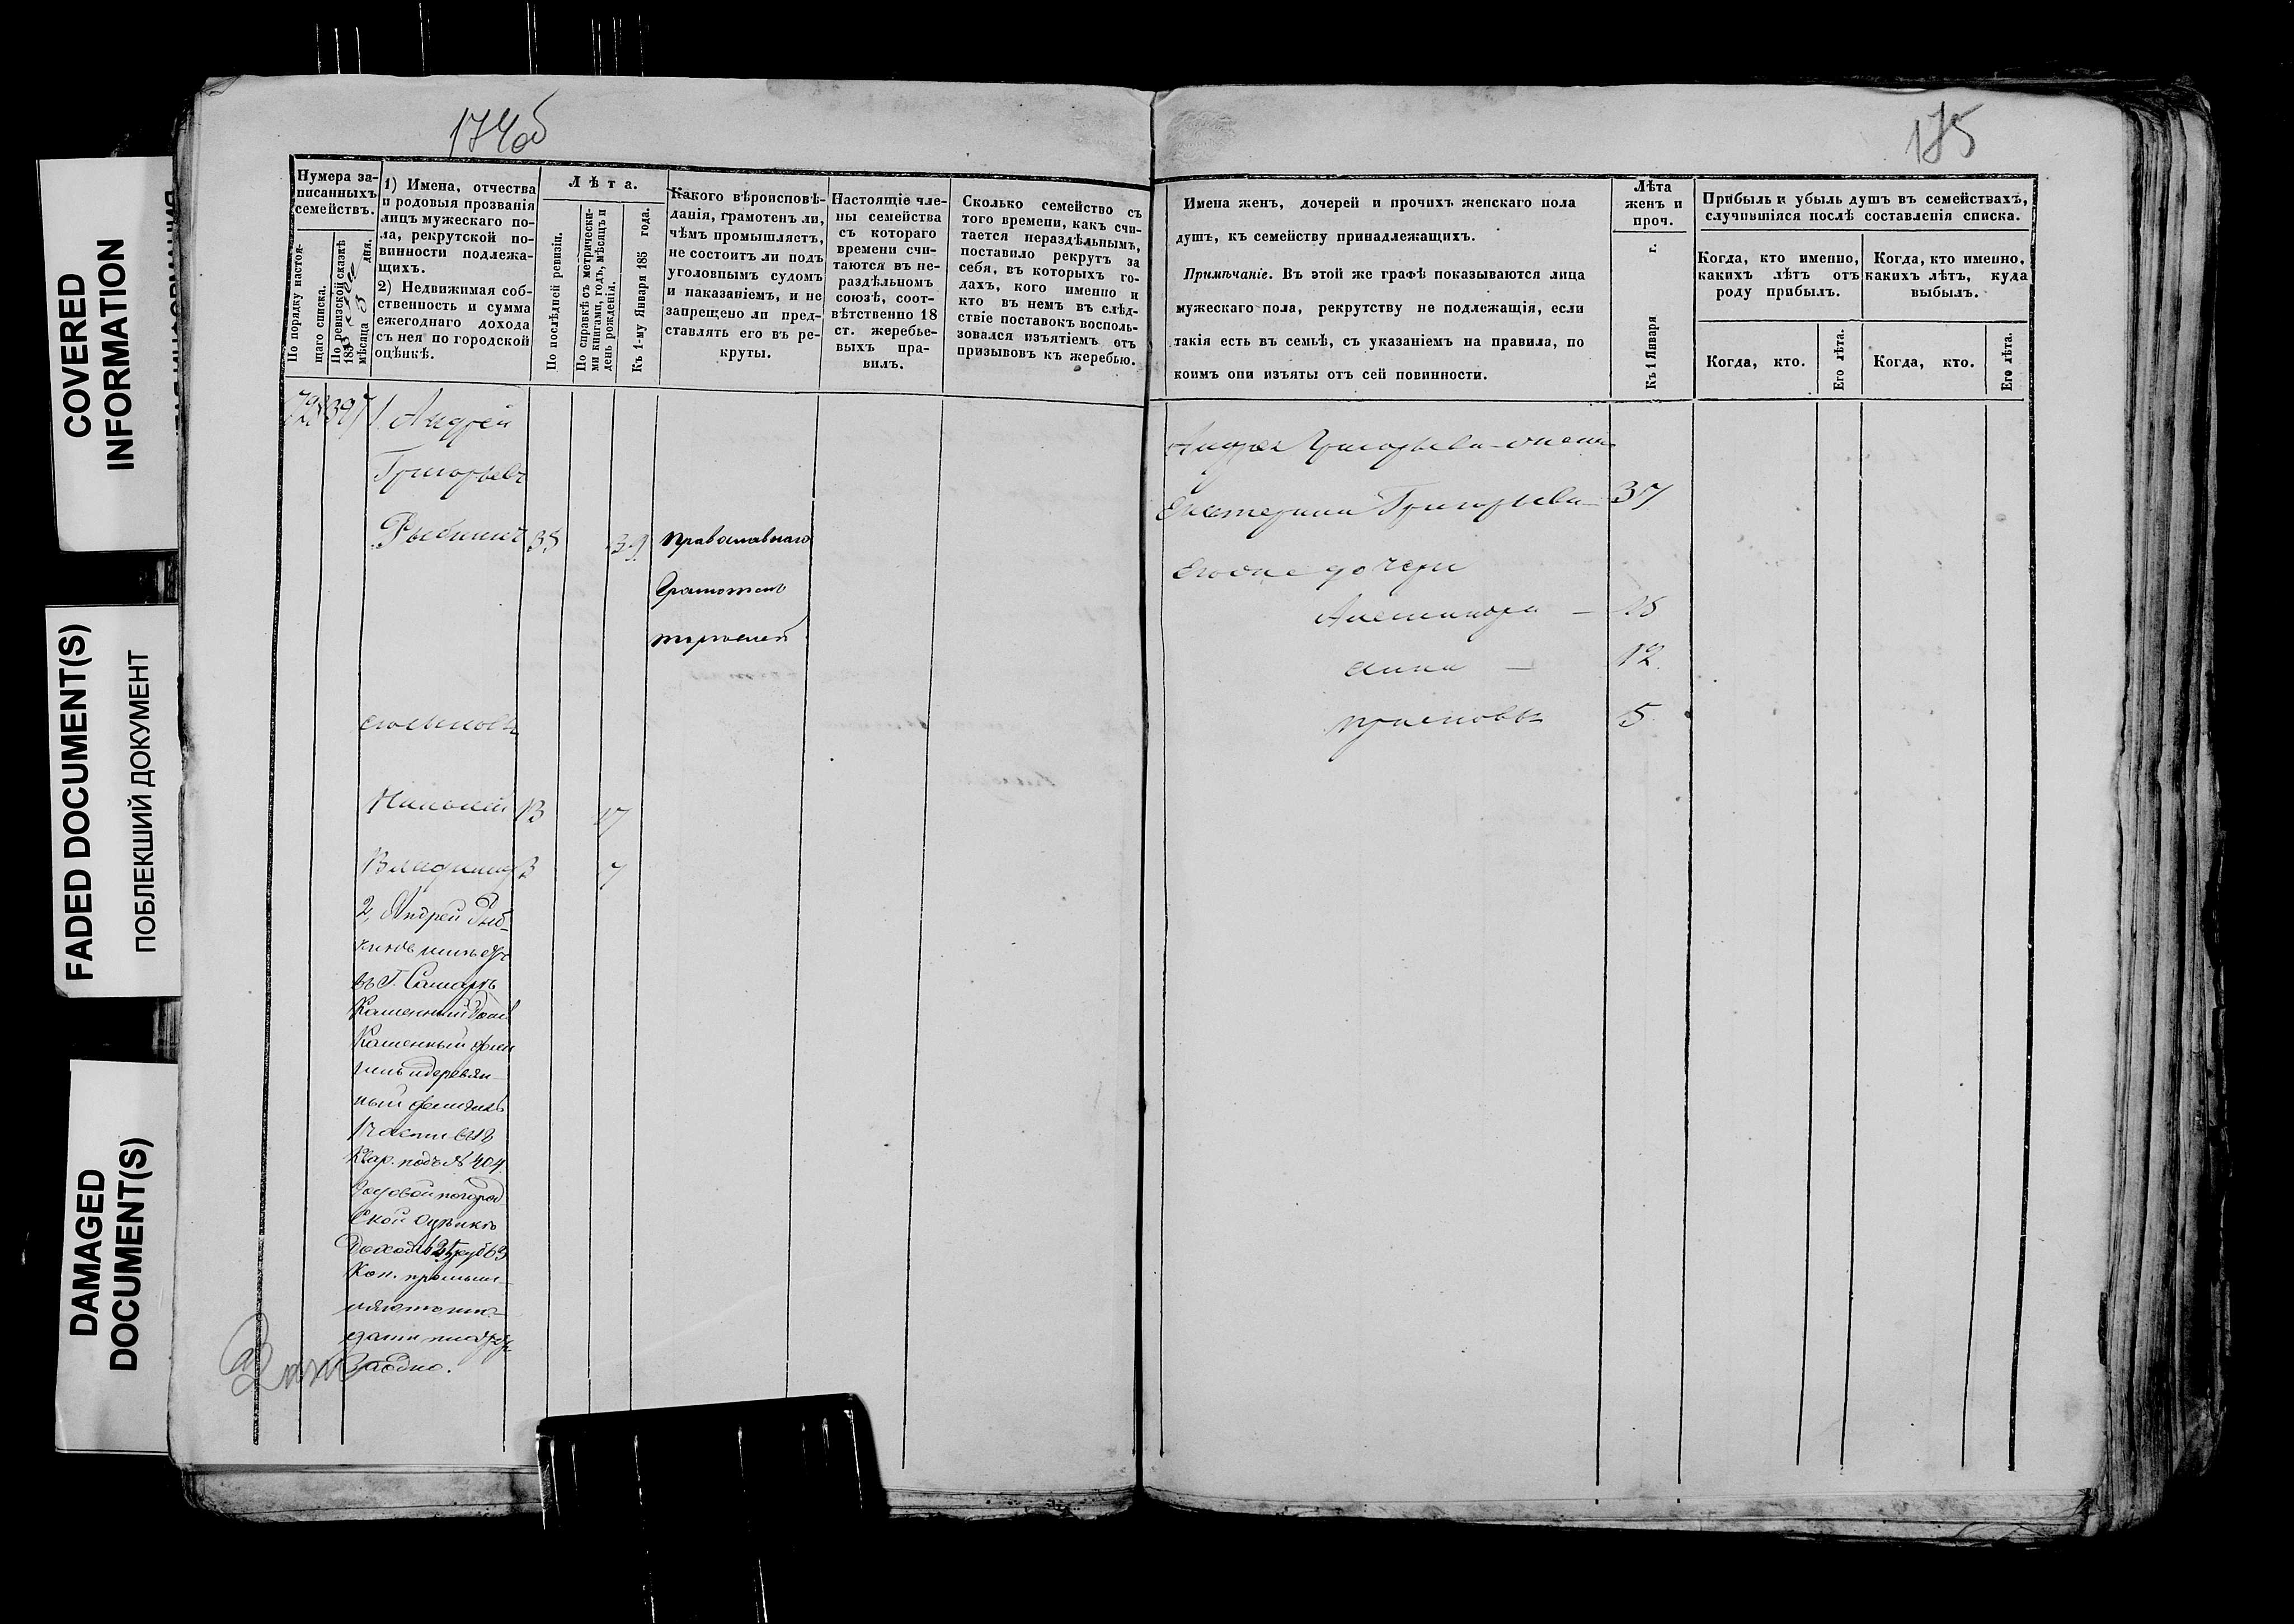 COVERED
INFORMATION
FADED DOCUMENT(S)
ПОБЛЕКШИЙ ДОКУМЕНТ
DAMAGED
DOCUMENT(S)
174об
Нумера за-
писанныхъ
семействъ.
По порядку настоя-
щаго списка.
По ревизской сказкѣ
185
мѣсяца дня.
1) Имена, отчества
и родовыя прозванія
лицъ мужескаго по-
ла, рекрутской по-
винности подлежа-
щихъ.
2) Недвижимая соб-
ственность и сумма
ежегоднаго дохода
съ нея по городской
оцѣнкѣ.
Лѣта.
По послѣдней ревизіи.
По справкѣ съ метрически-
ми книгами, годъ, мѣсяцъ и
день рожденія.
Къ 1-му Января 185 года.
Какого вѣроисповѣ-
данія, грамотенъ ли,
чѣмъ промышляетъ,
не состоитъ ли подъ
уголовнымъ судомъ
и наказаніемъ, и не
запрещено ли пред-
ставлять его въ ре-
круты.
Настоящіе чле-
ны семейства
съ котораго
времени счи-
таются въ не-
раздѣльномъ
союзѣ, соот-
вѣтственно 18
ст. жеребье-
выхъ пра-
вилъ.
Сколько семейство съ
того времени, какъ счи-
тается нераздѣльнымъ,
поставило рекрутъ за
себя, въ которыхъ го-
дахъ, кого именно и
кто въ немъ въ слѣд-
ствіе поставокъ восполь-
зовался изъятіемъ отъ
призывовъ къ жеребью.
397
1. Андрей
Григорьевъ
35
39
православнаго
Грамотенъ
торговлей
его сыновья
Николай 13 17
Владимiръ 3 7
2, Андрей Рыб-
въ Г. Самарѣ
Каменный домъ
Каменный флигель
и деревян-
ный флигель
1 части в 18
Квар. подъ № 404
Годовой по город-
ской оцѣнкѣ
Доходъ 125 руб 63
Коп. промыш-
Заодно.
175
Имена женъ, дочерей и прочихъ женскаго пола
душъ, къ семейству принадлежащихъ.
Примѣчаніе. Въ этой же графѣ показываются лица
мужескаго пола, рекрутству не подлежащія, если
такія есть въ семьѣ, съ указаніемъ на правила, по
коимъ они изъяты отъ сей повинности.
Лѣта
женъ и
проч.
Къ 1 Января г.
Прибыль и убыль душъ въ семействахъ,
случившіяся послѣ составленія списка.
Когда, кто именно,
какихъ лѣтъ отъ
роду прибылъ.
Когда, кто именно,
какихъ лѣтъ, куда
выбылъ.
Когда, кто.
Его лѣта.
Когда, кто.
Его лѣта.
Андрея Григорьева жена
Екатерина Григорьева 37
его дочери
Александра — 15
Анна — 12
Прасковья 5